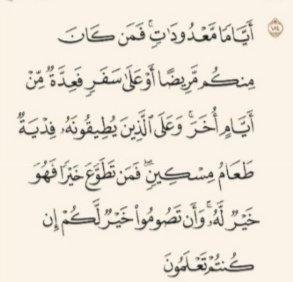 أَيَّامًا مَّعْدُودَاتٍ ۚ فَمَن كَانَ ١٨٤
مِنكُم مَّرِيضًا أَوْ عَلَىٰ سَفَرٍ فَعِدَّةٌ مِّنْ
أَيَّامٍ أُخَرَ ۚ وَعَلَى ٱلَّذِينَ يُطِيقُونَهُۥ فِدْيَةٌ
طَعَامُ مِسْكِينٍ ۖ فَمَن تَطَوَّعَ خَيْرًا فَهُوَ
خَيْرٌ لَّهُۥ ۚ وَأَن تَصُومُوا۟ خَيْرٌ لَّكُمْ إِن
كُنتُمْ تَعْلَمُونَ